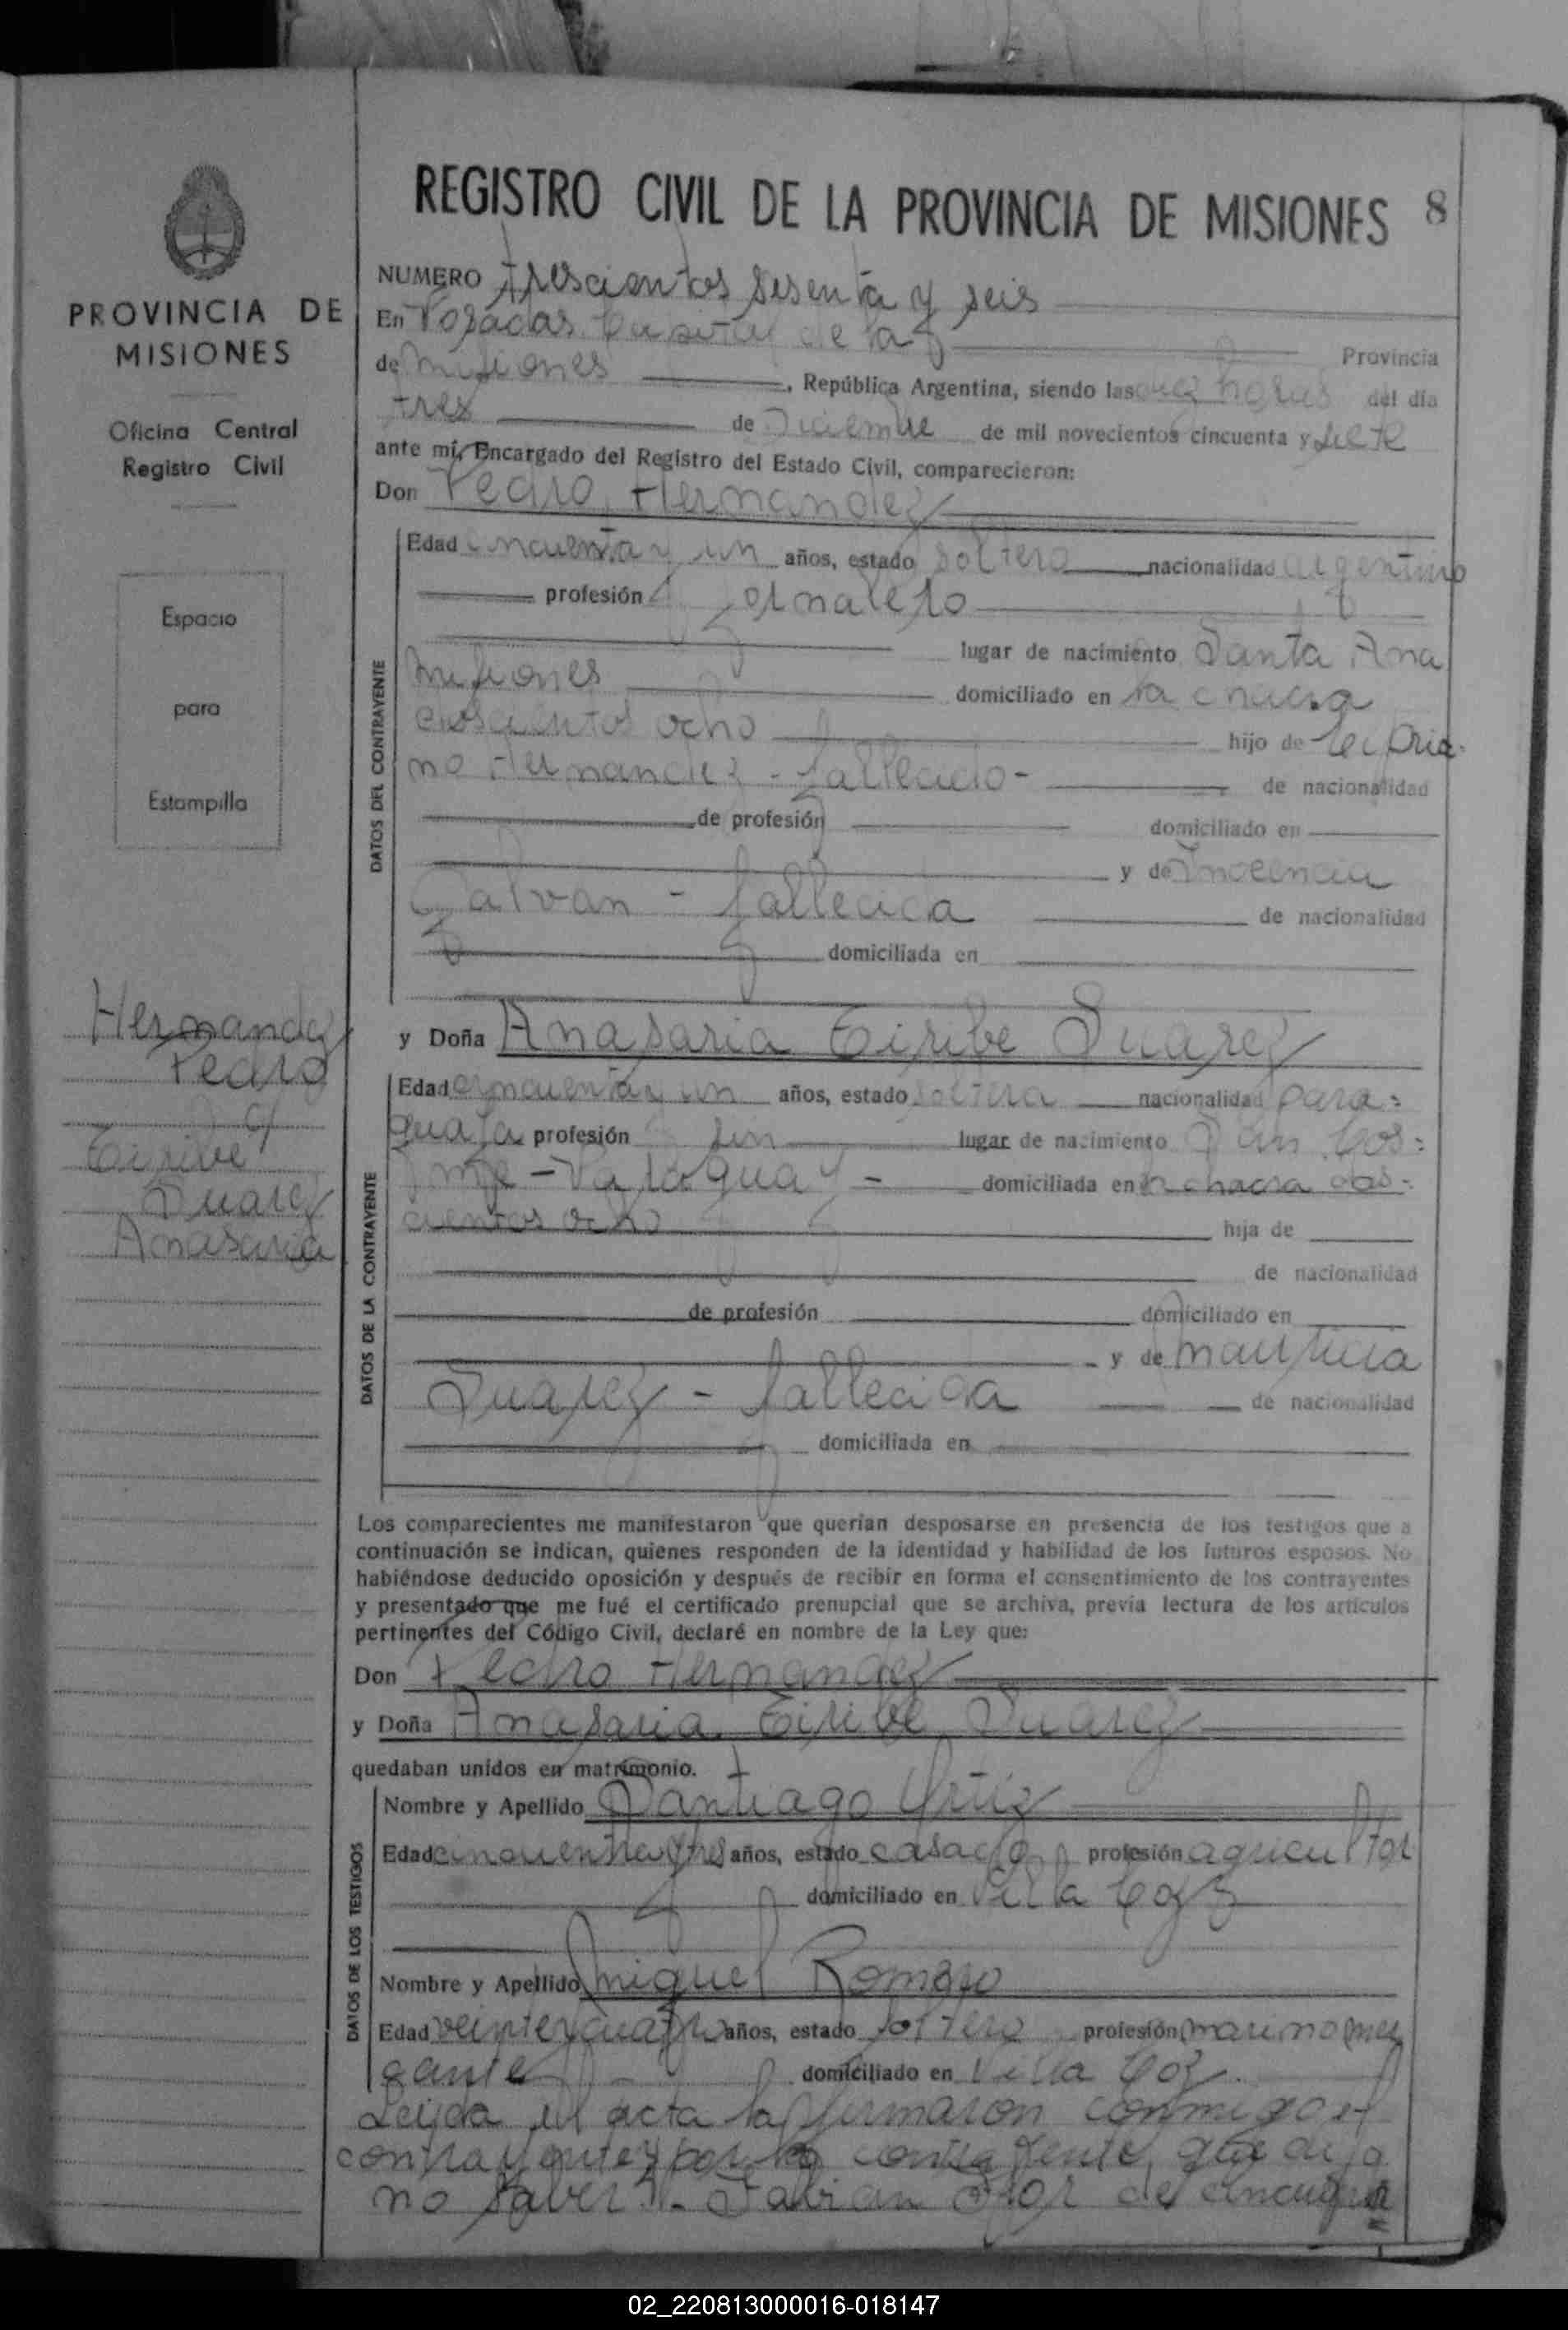 REGISTRO CIVIL DE LA PROVINCIA DE MISIONES 8
PROVINCIA DE
MISIONES
Oficina Central
Registro Civil
Espacio
para
Estampilla
Hernandez
Pedro
y
Eiribe
Suarez
Anasaria
NUMERO trescientos sesenta y seis
En Posadas Capital de la Provincia
de misiones, República Argentina, siendo las diez horas del día
tres de Diciembre de mil novecientos cincuenta y siete
ante mí, Encargado del Registro del Estado Civil, comparecieron:
Don Pedro Hernandez
DATOS DEL CONTRAYENTE
Edad cincuenta y un años, estado soltero nacionalidad argentino
profesión jornalero
lugar de nacimiento Santa Ana
misiones domiciliado en la chacra
doscientos ocho hijo de Cipria-
no Hernandez - fallecido - de nacionalidad
de profesión domiciliado en
y de Inocencia
Galvan - fallecida de nacionalidad
domiciliada en
y Doña Anasaria Eiribe Suarez
DATOS DE LA CONTRAYENTE
Edad cincuenta y un años, estado soltera nacionalidad para=
guaya profesión sin lugar de nacimiento San Cos=
me - Paraguay - domiciliada en la chacra dos=
cientos ocho hija de
de nacionalidad
de profesión domiciliado en
y de mauricia
Suarez - fallecida de nacionalidad
domiciliada en
Los comparecientes me manifestaron que querían desposarse en presencia de los testigos que a
continuación se indican, quienes responden de la identidad y habilidad de los futuros esposos. No
habiéndose deducido oposición y después de recibir en forma el consentimiento de los contrayentes
y presentado que me fué el certificado prenupcial que se archiva, previa lectura de los artículos
pertinentes del Código Civil, declaré en nombre de la Ley que:
Don Pedro Hernandez
y Doña Anasaria Eiribe Suarez
quedaban unidos en matrimonio.
DATOS DE LOS TESTIGOS
Nombre y Apellido Santiago Ortiz
Edad cincuenta y tres años, estado casado profesión agricultor
domiciliado en Villa Coz
Nombre y Apellido miguel Romero
Edad veinte y cuatro años, estado soltero profesión marino mer
cante domiciliado en Villa Coz.
Leida el acta la firmaron conmigo el
contrayente y por la contrayente que dijo
no saber. - Fabian de cincuenta
02_220813000016-018147